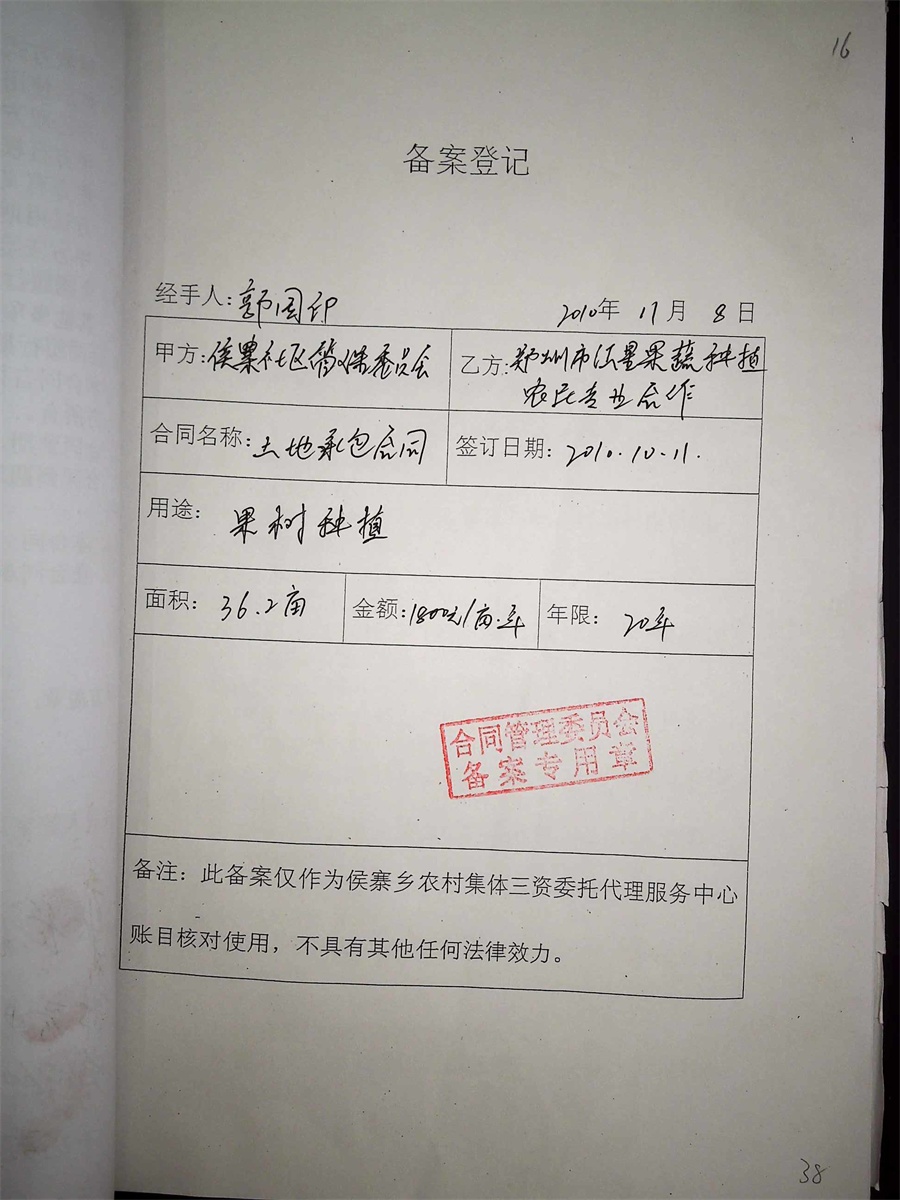 16
备案登记
经手人:郭国印 2010年 11月 8日
甲方:侯寨社区管理委员会
乙方:郑州市红星果蔬种植
农民专业合作
合同名称:土地承包合同
签订日期:2010.10.11.
用途: 果树种植
面积: 36.2亩
金额:1800元/亩.年
年限: 20年
合同管理委员会
备案专用章
备注:此备案仅作为侯寨乡农村集体三资委托代理服务中心
账目核对使用,不具有其他任何法律效力。
38